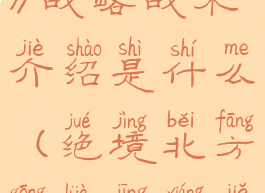 》战略战术
jiè shào shì shí me
介绍是什么
jué jìng běi fāng
（绝境北方